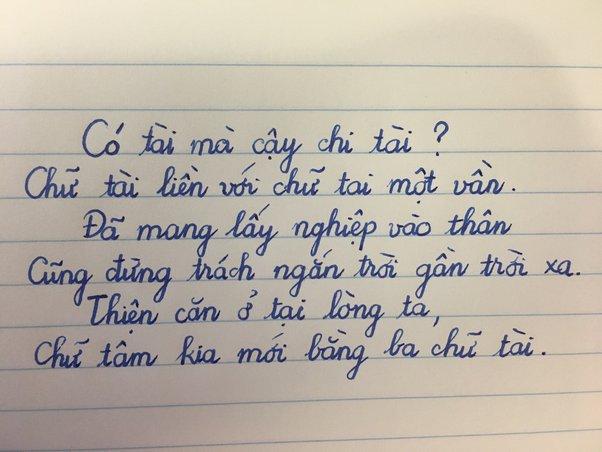 Có tài mà cậy chi tài ?
Chữ tài liền với chữ tai một vần.
Đã mang lấy nghiệp vào thân
Cũng đừng trách ngắn trời gần trời xa.
Thiện căn ở tại lòng ta,
Chữ tâm kia mới bằng ba chữ tài.